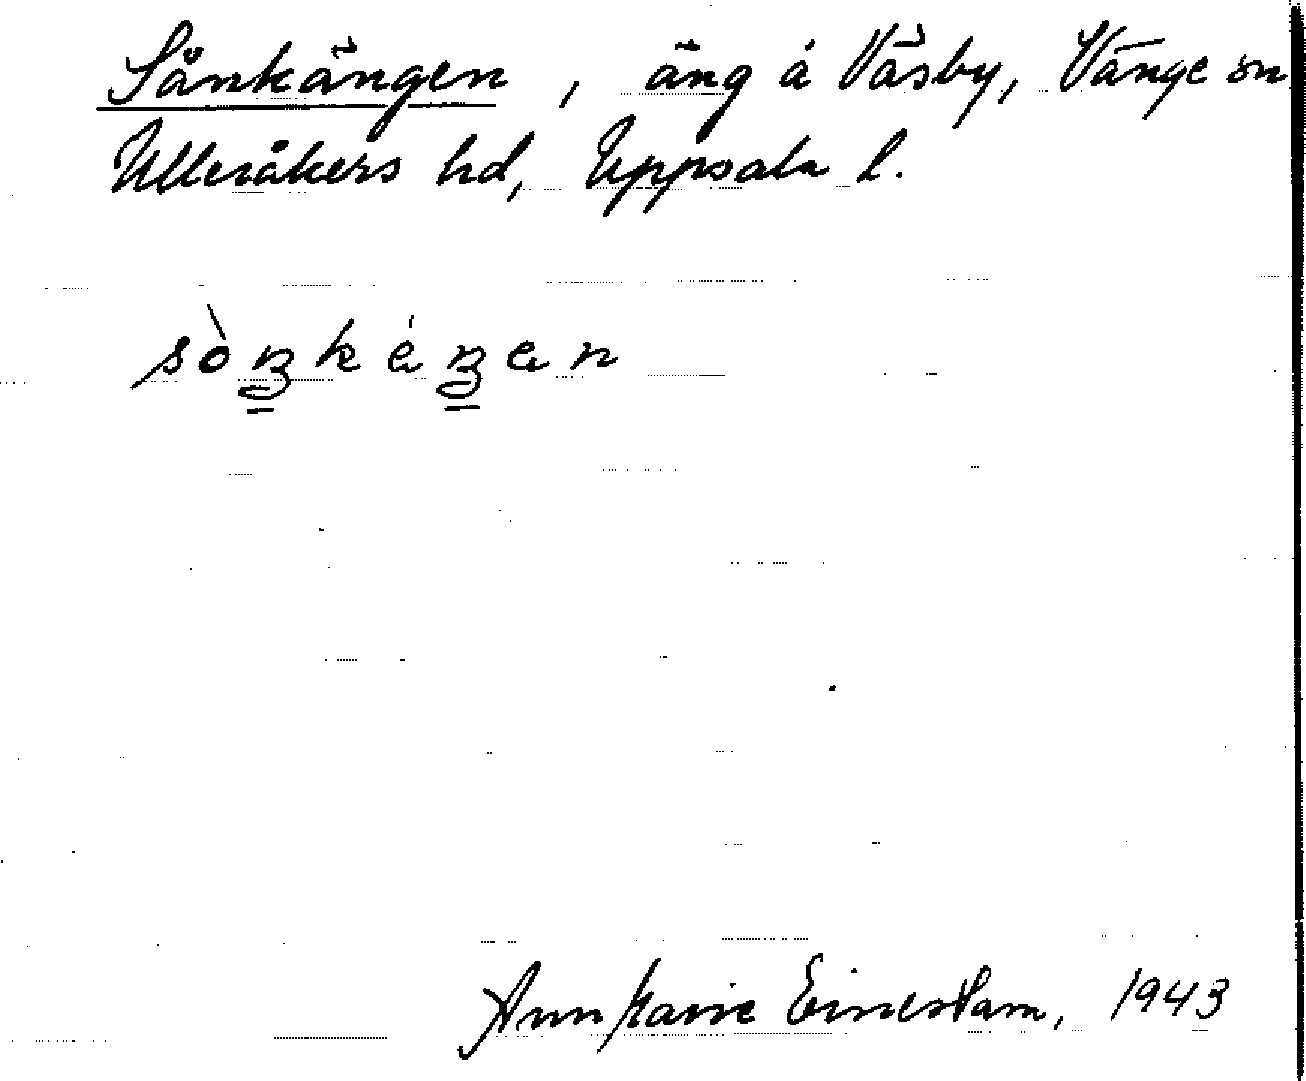 Sånkängen, äng å Väsby, Vänge sn
Ulleråkers hd, Uppsala l.
sòŋkéŋen
Ann Marie Einerstam, 1943